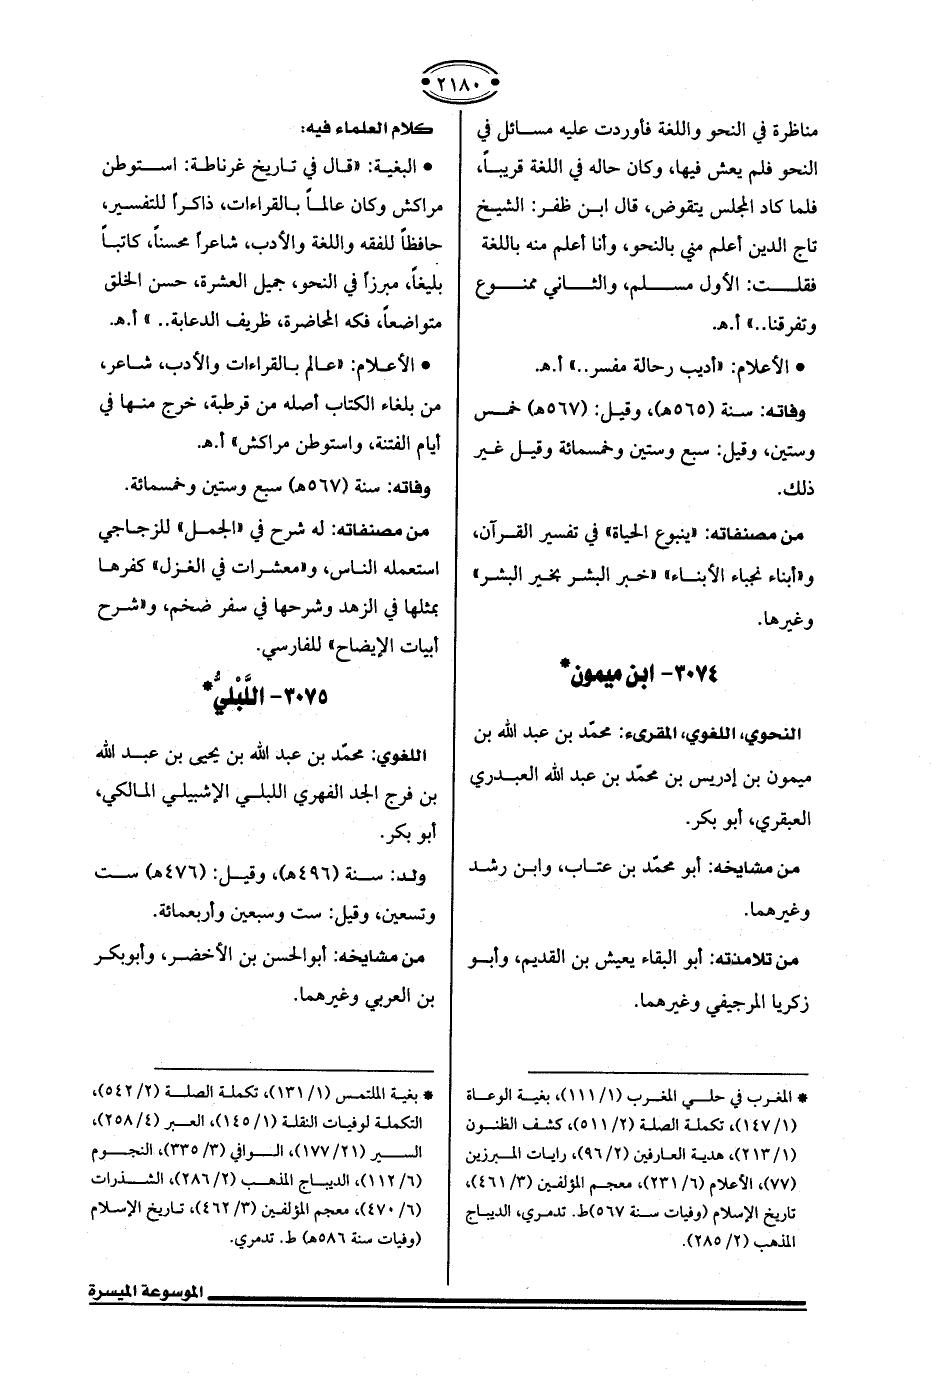 ٢١٨٠
مناظرة في النحو واللغة فأوردت عليه مسائل في
النحو فلم يعش فيها، وكان حاله في اللغة قريباً،
فلما كاد المجلس يتقوض، قال ابن ظفر: الشيخ
تاج الدين أعلم مني بالنحو، وأنا أعلم منه باللغة
فقلت: الأول مسلم، والثاني ممنوع
وتفرقنا..» أ.هـ.
• الأعلام: «أديب رحالة مفسر..» أ.هـ.
وفاته: سنة (٥٦٥هـ)، وقيل: (٥٦٧هـ) خمس
وستين، وقيل: سبع وستين وخمسمائة وقيل غير
ذلك.
من مصنفاته: «ينبوع الحياة» في تفسير القرآن،
و«أبناء نجباء الأبناء» «خبر البشر بخير البشر»
وغيرها.
٣٠٧٤- ابن ميمون*
النحوي، اللغوي، المقرىء: محمّد بن عبد الله بن
ميمون بن إدريس بن محمّد بن عبد الله العبدري
العبقري، أبو بكر.
من مشايخه: أبو محمّد بن عتاب، وابن رشد
وغيرهما.
من تلامذته: أبو البقاء يعيش بن القديم، وأبو
زكريا المرجيفي وغيرهما.
* المغرب في حلي المغرب (١/ ١١١)، بغية الوعاة
(١/ ١٤٧)، تكملة الصلة (٢/ ٥١١)، كشف الظنون
(١/ ٢١٣)، هدية العارفين (٢/ ٩٦)، رايات المبرزين
(٧٧)، الأعلام (٦/ ٢٣١)، معجم المؤلفين (٣/ ٤٦١)،
تاريخ الإسلام (وفيات سنة ٥٦٧)ط. تدمري، الديباج
المذهب (٢/ ٢٨٥).
كلام العلماء فيه:
• البغية: «قال في تاريخ غرناطة: استوطن
مراكش وكان عالماً بالقراءات، ذاكراً للتفسير،
حافظاً للفقه واللغة والأدب، شاعراً محسناً، كاتباً
بليغاً، مبرزاً في النحو، جميل العشرة، حسن الخلق
متواضعاً، فكه المحاضرة، ظريف الدعابة.. » أ.هـ.
• الأعلام: «عالم بالقراءات والأدب، شاعر،
من بلغاء الكتاب أصله من قرطبة، خرج منها في
أيام الفتنة، واستوطن مراكش» أ.هـ.
وفاته: سنة (٥٦٧هـ) سبع وستين وخمسمائة.
من مصنفاته: له شرح في «الجمل» للزجاجي
استعمله الناس، و«معشرات في الغزل» كفرها
بمثلها في الزهد وشرحها في سفر ضخم، و«شرح
أبيات الإيضاح» للفارسي.
٣٠٧٥- اللَّبْليُّ*
اللغوي: محمّد بن عبد الله بن يحيى بن عبد الله
بن فرج الجد الفهري اللبلي الإشبيلي المالكي،
أبو بكر.
ولد: سنة (٤٩٦هـ)، وقيل: (٤٧٦هـ) ست
وتسعين، وقيل: ست وسبعين وأربعمائة.
من مشايخه: أبوالحسن بن الأخضر، وأبوبكر
بن العربي وغيرهما.
* بغية الملتمس (١/ ١٣١)، تكملة الصلة (٢/ ٥٤٢)،
التكملة لوفيات النقلة (١/ ١٤٥)، العبر (٤/ ٢٥٨)،
السير (٢١/ ١٧٧)، الوافي (٣/ ٣٣٥)، النجوم
(٦/ ١١٢)، الديباج المذهب (٢/ ٢٨٦)، الشذرات
(٦/ ٤٧٠)، معجم المؤلفين (٣/ ٤٦٢)، تاريخ الإسلام
(وفيات سنة ٥٨٦هـ) ط. تدمري.
الموسوعة الميسرة